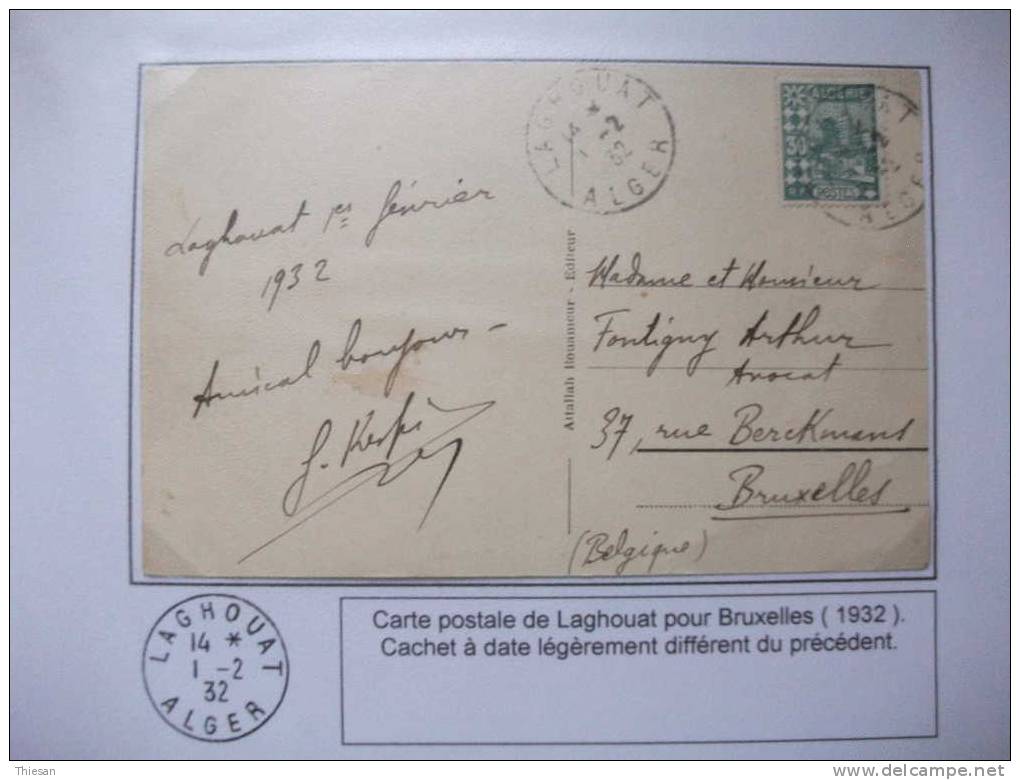 LAGHOUAT
ALGER
ALGERIE
30
POSTES
Laghouat 1er février
1932
Amical bonjour -
Attallah Bouameur - Editeur
Madame et Monsieur
Fontigny Arthur
Avocat
37, rue Berckmans
Bruxelles
(Belgique)
LAGHOUAT
14 *
1 -2
32
ALGER
Carte postale de Laghouat pour Bruxelles ( 1932 ).
Cachet à date légèrement différent du précédent.
Thiesan
www.delcampe.net